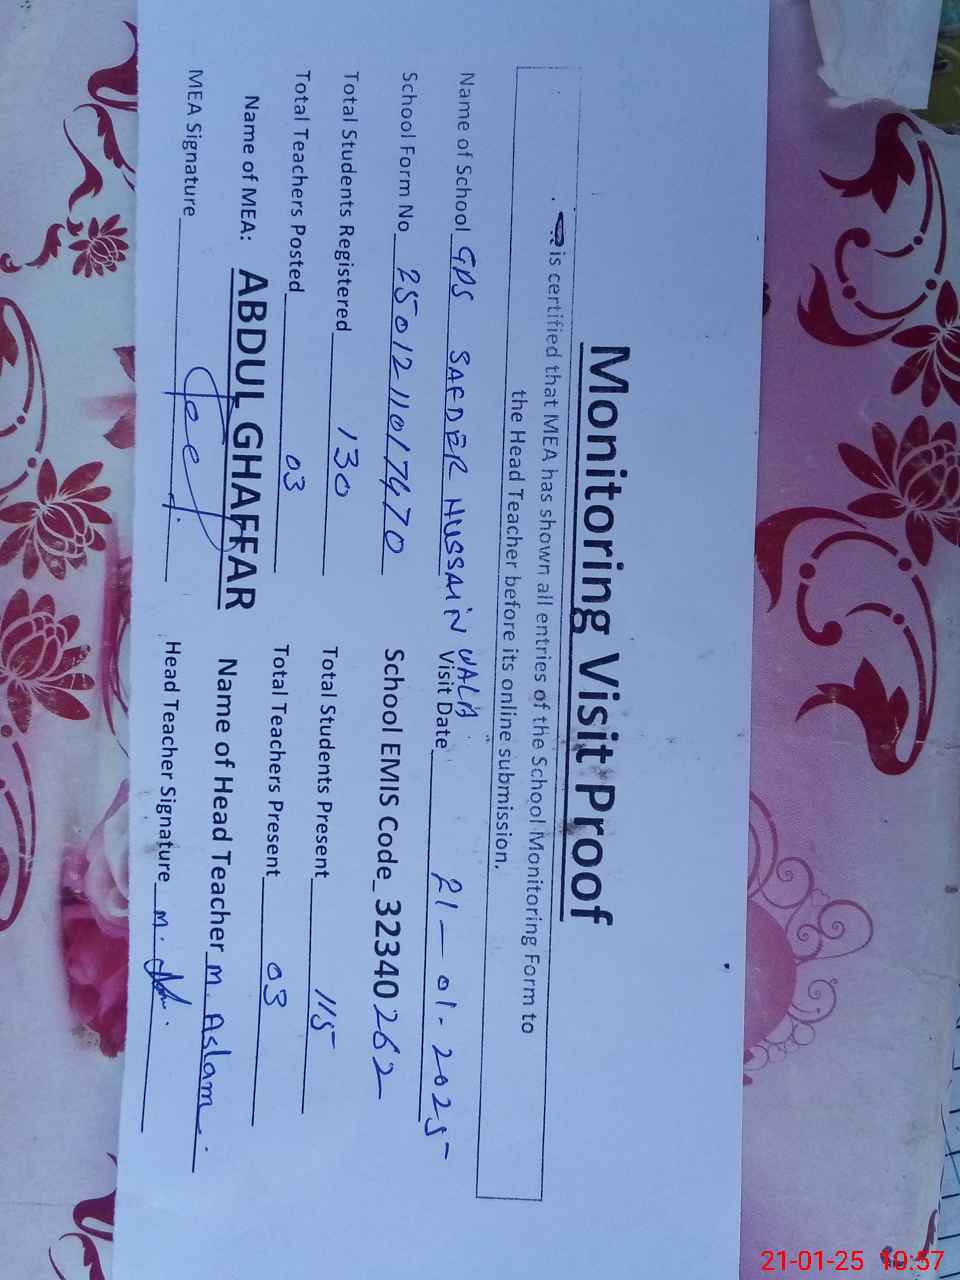 Monitoring Visit Proof
is certified that MEA has shown all entries of the School Monitoring Form to
the Head Teacher before its online submission.
Name of School GPS SAFDER HUSSAIN WALA Visit Date 21-01-2025
School Form No 2501211017470 School EMIS Code 32340262
Total Students Registered 130 Total Students Present 115
Total Teachers Posted 03 Total Teachers Present 03
Name of MEA: ABDUL GHAFFAR Name of Head Teacher M. Aslam.
MEA Signature Head Teacher Signature M.
21-01-25 10:57